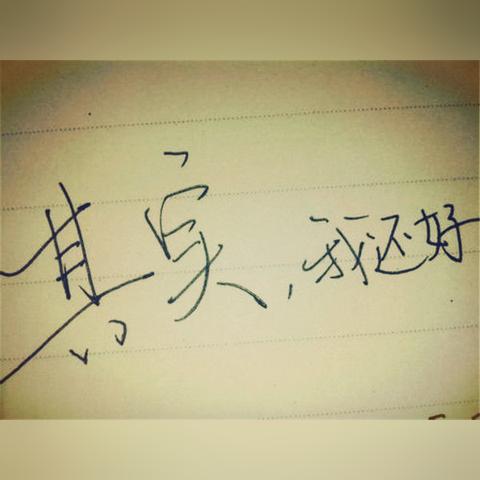 其实，我还好